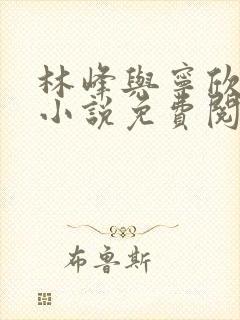 林峰與寧欣
小說免費閱
布魯斯